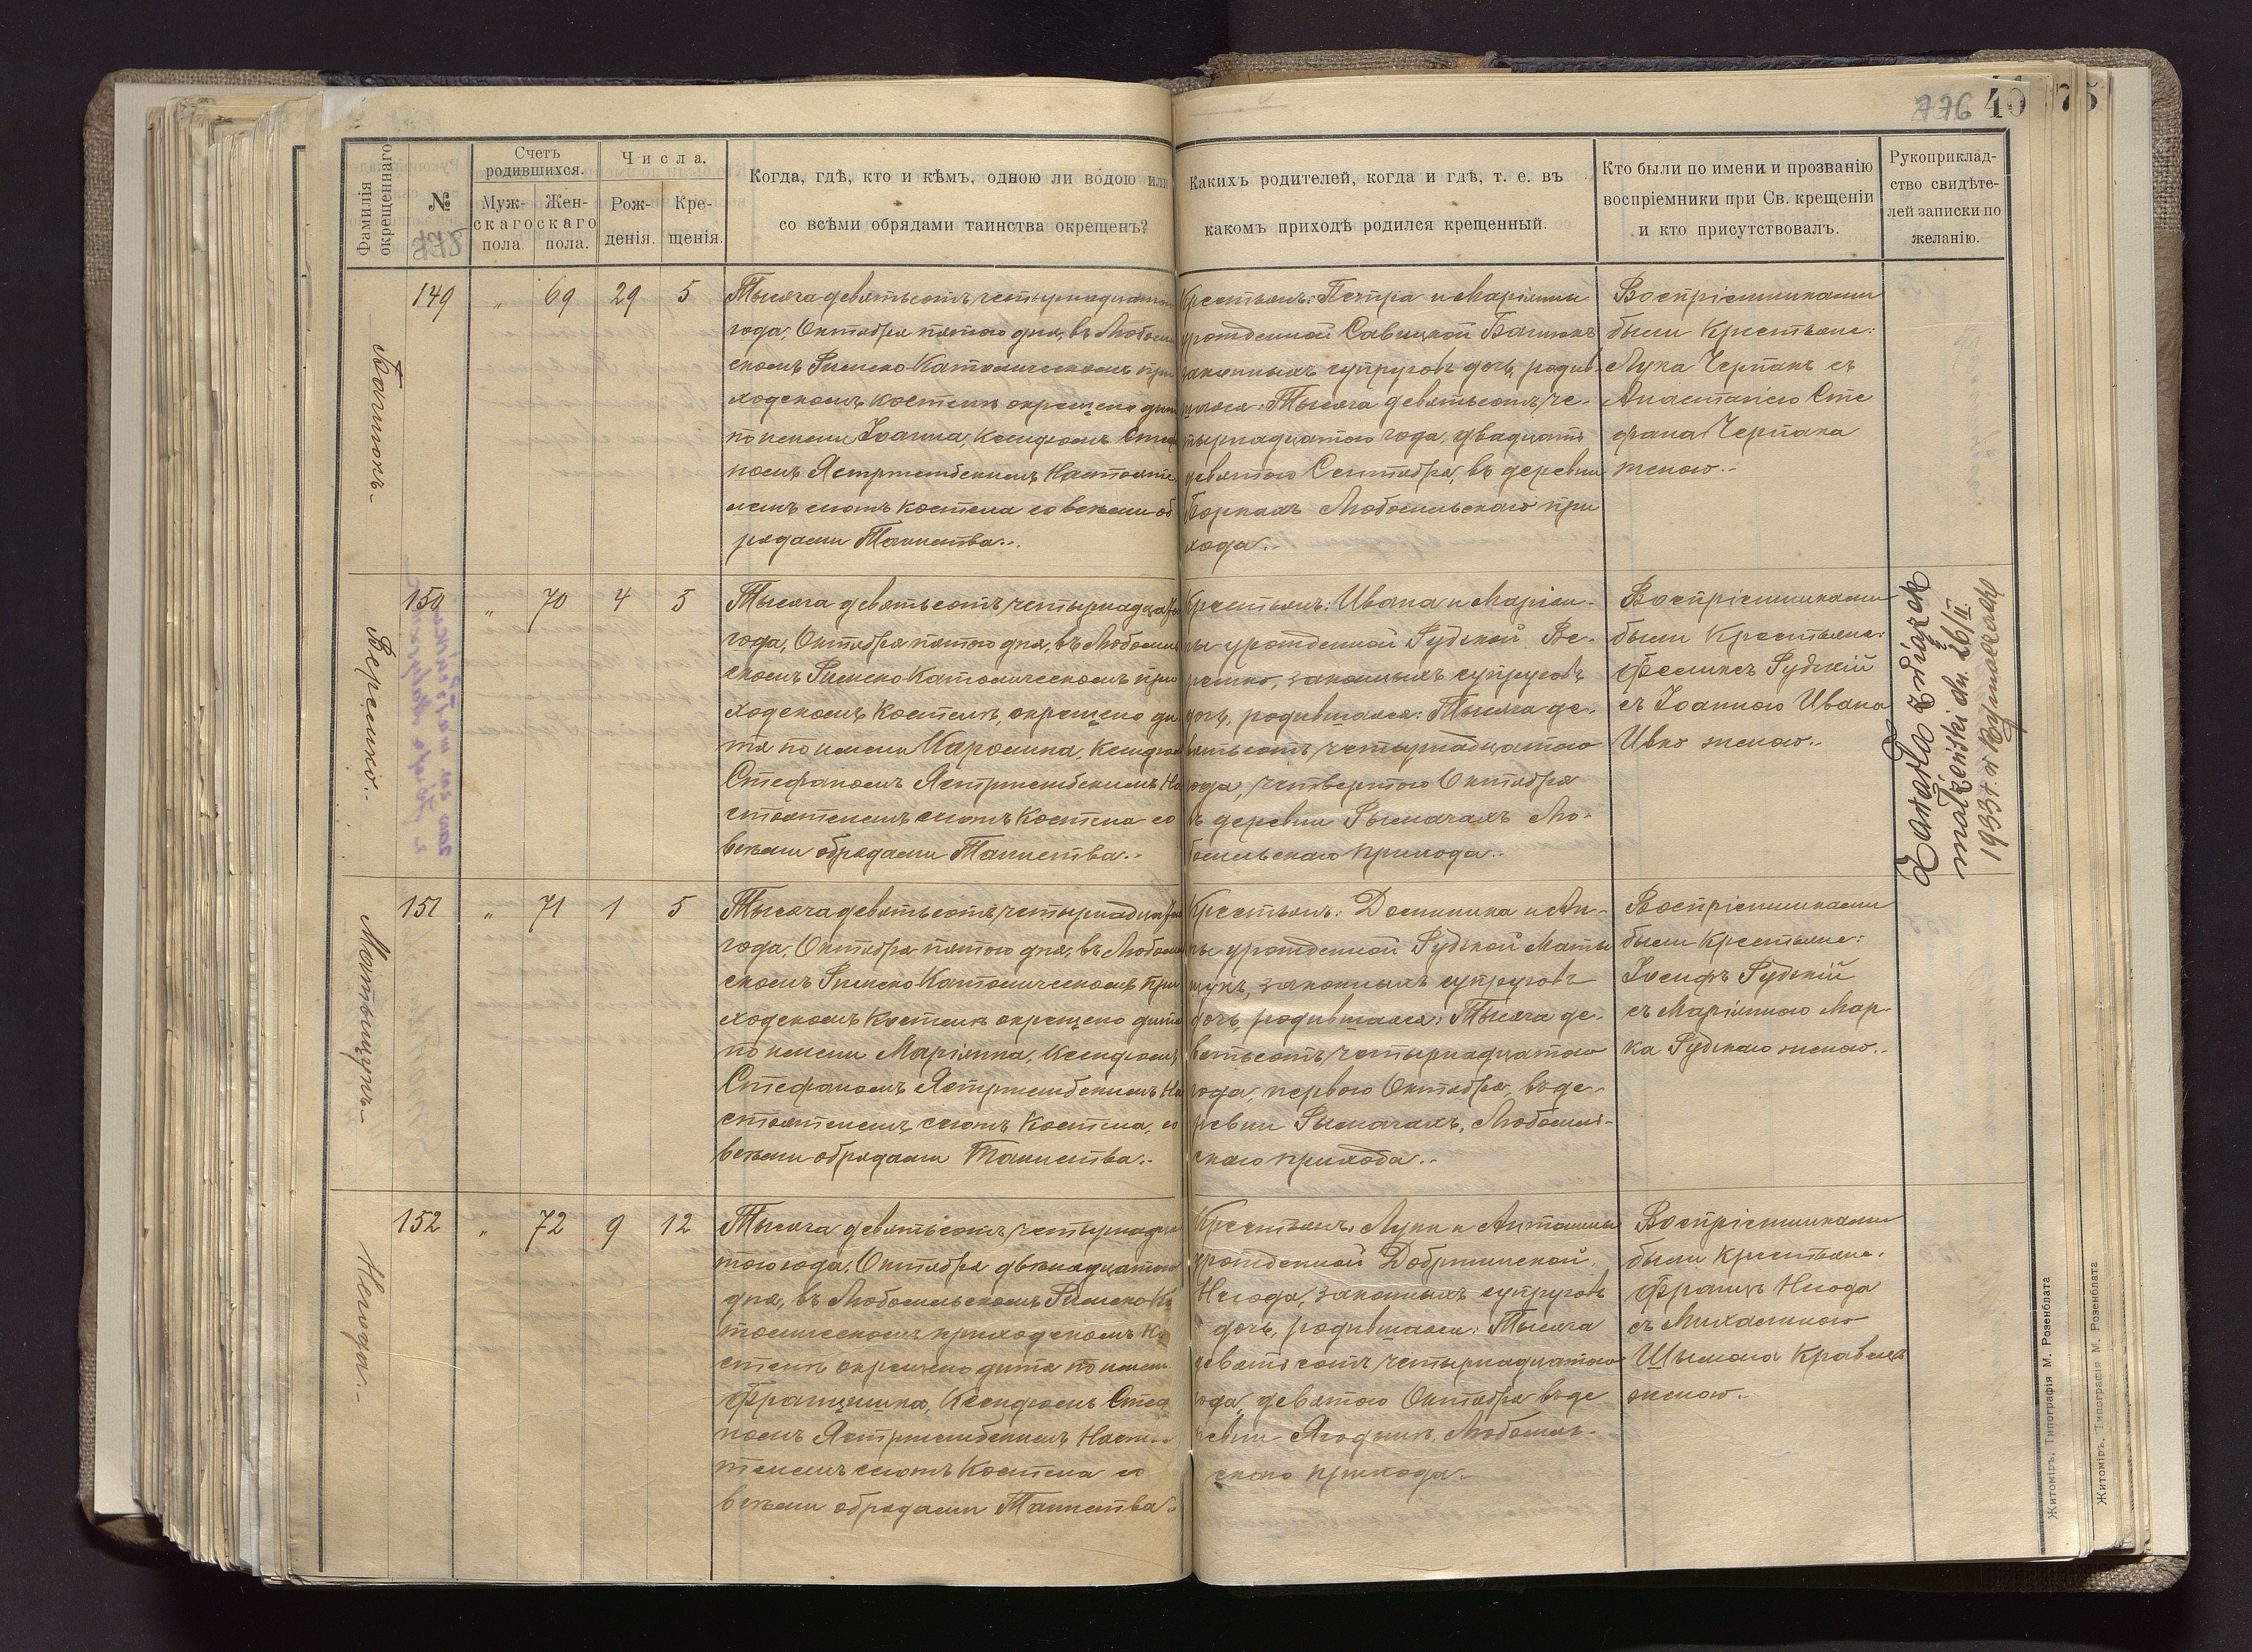 776 40 75
Фамилія окрещеннаго
№
Счетъ родившихся.
Муж-
скаго
пола.
Жен-
скаго
пола.
Числа.
Рож-
денія.
Кре-
щенія.
Когда, гдѣ, кто и кѣмъ, одною ли водою или
со всѣми обрядами таинства окрещенъ?
Какихъ родителей, когда и гдѣ, т. е. въ
какомъ приходѣ родился крещенный.
Кто были по имени и прозванію
воспріемники при Св. крещеніи
и кто присутствовалъ.
Рукоприклад-
ство свидѣте-
лей записки по
желанію.
149 „ 69 29 5
Тысяча девятьсотъ четырнадцатого
года, Октября пятого дня, въ Любомль
скомъ Римско Католическомъ при
ходскомъ костелѣ окрещено дитя
по имени Іоанна, Ксендзомъ Стефа
номъ Ястржембскимъ Настояте
лемъ сего костела со всѣми об
рядами Таинства.
Крестьянъ: Петра и Маріянны
урожденной Савицкой
законныхъ супруговъ дочь, родив-
шаяся: Тысяча девятьсотъ че-
тырнадцатого года, двадцать
девятого Сентября, въ деревни
Боркахъ Любомльскаго при
хода.
Воспріемниками
были Крестьяне:
Лука Черпакъ съ
Анастасіею Сте
фана Черпака
женою.
150 „ 70 4 5
Верешко.
Тысяча девятьсотъ четырнадцатого
года, Октября пятого дня, въ Любомль
скомъ Римско Католическомъ при
ходскомъ костелѣ, окрещено ди
тя по имени Каролина, Ксендзомъ
Стефаномъ Ястржембскимъ На
стоятелемъ сего костела со
всѣми обрядами Таинства.
Крестьянъ: Ивана и Маріян-
ны урожденной Рудской Ве-
решко, законныхъ супруговъ
дочь, родившаяся: Тысяча де-
вятьсотъ четырнадцатого
года, четвертого Октября
въ деревни Рымачахъ Лю-
бомльскаго прихода.
Воспріемниками
были Крестьяне:
Феликсъ Рудскій
съ Іоанною Ивана
Ивко женою.
Zawarła związek
małżeński dn. 26/II
1933 r. w Rymaczach
151 „ 71 1 5
Матыщукъ
Тысяча девятьсотъ четырнадцатого
года, Октября пятого дня, въ Любомль
скомъ Римско Католическомъ при
ходскомъ костелѣ окрещено дитя
по имени Маріянна, Ксендзомъ
Стефаномъ Ястржембскимъ На
стоятелемъ сего костела, со
всѣми обрядами Таинства.
Крестьянъ: Доминика и Ан-
ны урожденной Рудской Маты
щукъ, законныхъ супруговъ
дочь, родившаяся: Тысяча де-
вятьсотъ четырнадцатого
года, первого Октября, въ де-
ревни Рымачахъ, Любомль-
скаго прихода.
Воспріемниками
были Крестьяне:
Іосифъ Рудскій
съ Маріянною Мар-
ка Рудскаго женою.
152 „ 72 9 12
Негода.
Тысяча девятьсотъ четырнадца
того года, Октября двѣнадцатого
дня, въ Любомльскомъ Римско Ка
толическомъ приходскомъ Ко
стелѣ окрещено дитя по имени
Францишка, Ксендзомъ Стефа
номъ Ястржембскимъ Насто
телемъ сего костела со
всѣми обрядами Таинства.
Крестьянъ: Луки и Антонины
урожденной Добржинской
Негода, законныхъ супруговъ
дочь, родившаяся: Тысяча
девятьсотъ четырнадцатого
года, девятого Октября въ де
ревни Ягодинъ, Любомль-
скаго прихода.
Воспріемниками
были Крестьяне:
Францъ Негода
съ Михалиною
Шымона Кравецъ
женою.
Житоміръ, Типографія М. Розенблата
Житоміръ, Типографія М. Розенблата